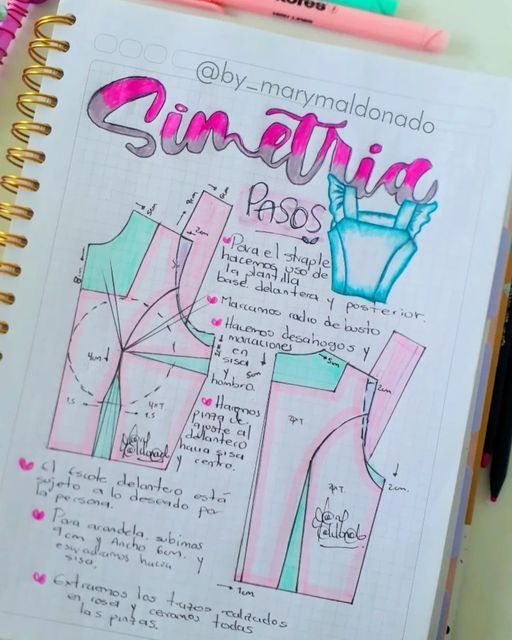 @by_marymaldonado
Simetría
PASOS
Para el straple
hacemos uso de
la plantilla
base delantera y posterior.
Marcamos radio de busto
Hacemos desahogos y
mariaciones
en
sisa
y
hombro.
Hacemos
pinza de
ajuste al
delantero
hacia sisa
y centro.
El Escote delantero está
sujeto a lo deseado por
la persona.
Para arandela. subimos
9cm y Ancho 6cm. y
escuadramos hacia
sisa.
Extraemos los trazos realizados
en rosa y cerramos todas
las pinzas.
5cm
2cm
4cm
1.5
1.5
4xT
5cm
2cm
2cm.
1cm